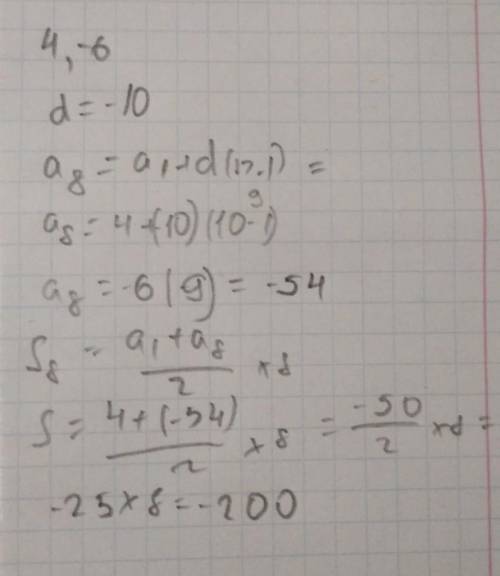 4, -6
d = -10
a₈ = a₁ + d(n-1) =
a₈ = 4 + (10)(10-1) 9
a₈ = -6(9) = -54
S₈ = (a₁ + a₈)/2 × 8
S = (4 + (-54))/2 × 8 = -50/2 × 8 =
-25 × 8 = -200